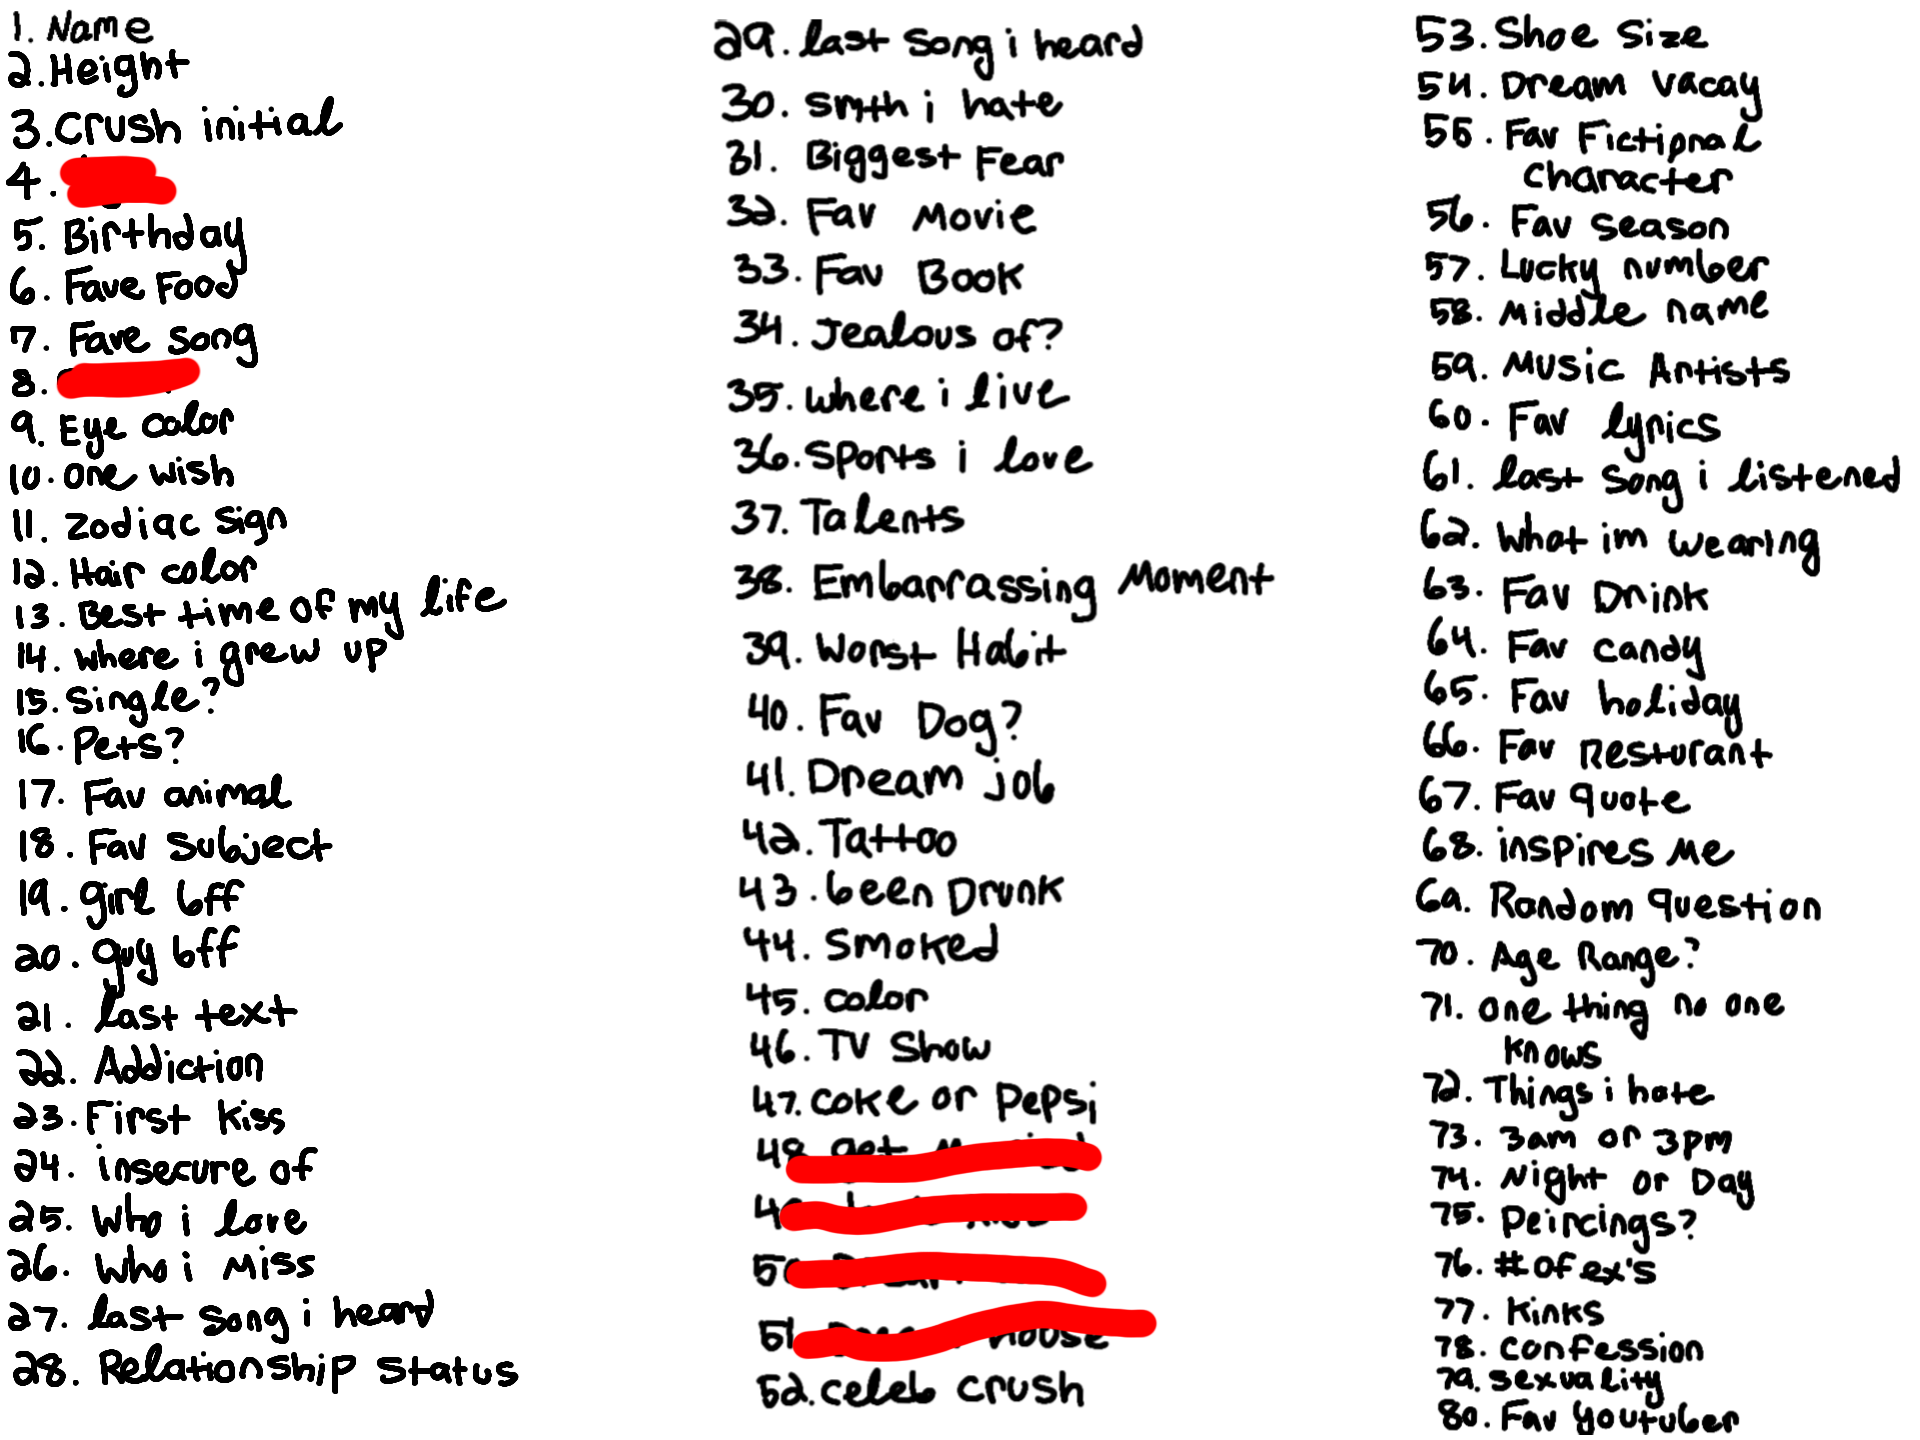 1. Name
2. Height
3. Crush initial
4.
5. Birthday
6. Fave Food
7. Fave song
8.
9. Eye color
10. one wish
11. zodiac sign
12. Hair color
13. Best time of my life
14. where i grew up
15. Single?
16. Pets?
17. Fav animal
18. Fav subject
19. girl bff
20. guy bff
21. last text
22. Addiction
23. First kiss
24. insecure of
25. Who i love
26. Who i Miss
27. last song i heard
28. Relationship status
29. last song i heard
30. smth i hate
31. Biggest Fear
32. Fav Movie
33. Fav Book
34. Jealous of?
35. where i live
36. Sports i love
37. Talents
38. Embarrassing Moment
39. Worst Habit
40. Fav Dog?
41. Dream job
42. Tattoo
43. been Drunk
44. Smoked
45. color
46. TV Show
47. coke or Pepsi
48. get
51. house
52. celeb crush
53. Shoe Size
54. Dream vacay
55. Fav Fictional
character
56. Fav season
57. Lucky number
58. Middle name
59. Music Artists
60. Fav lyrics
61. last song i listened
62. What im wearing
63. Fav Drink
64. Fav candy
65. Fav holiday
66. Fav Resturant
67. Fav quote
68. inspires me
69. Random question
70. Age Range?
71. one thing no one
knows
72. Things i hate
73. 3am or 3pm
74. Night or Day
75. Peircings?
76. # of ex's
77. Kinks
78. confession
79. sexuality
80. Fav youtuber